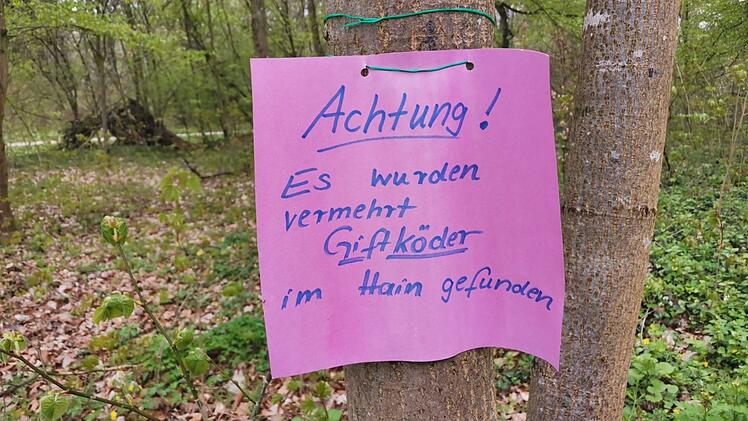 Achtung!
Es wurden
vermehrt
Giftköder
im Hain gefunden